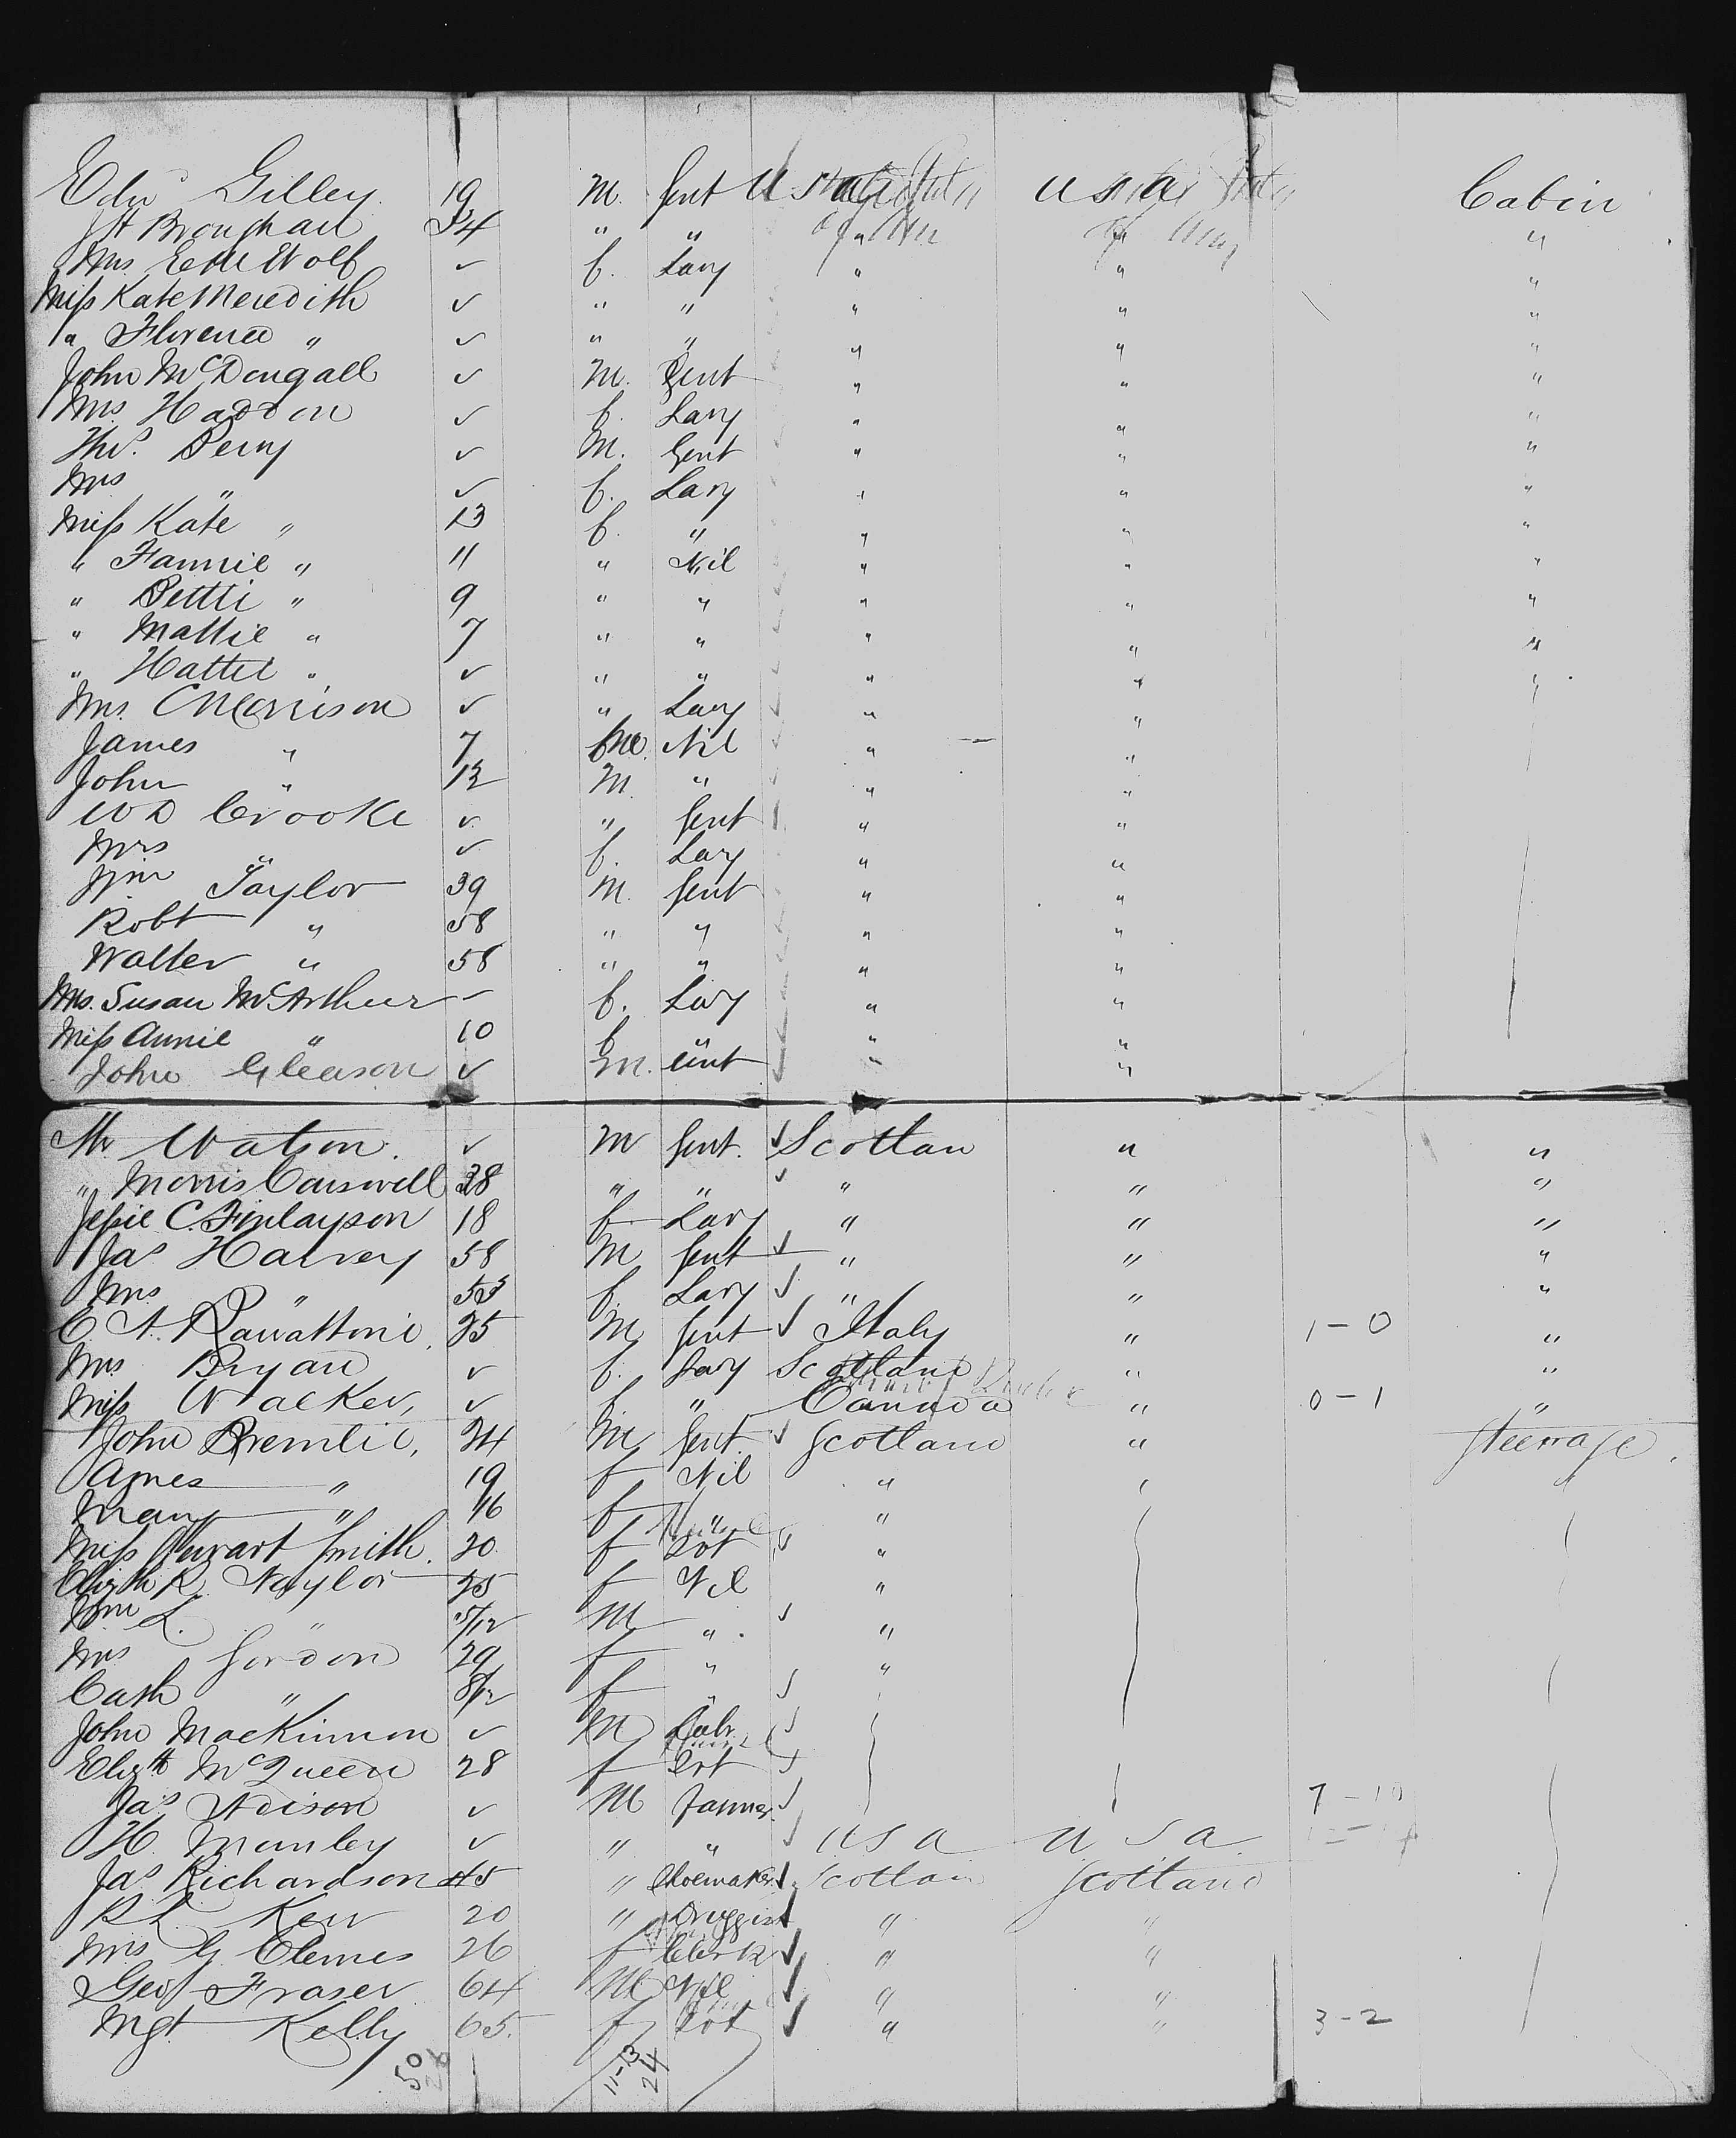 Edw Gilley 19 M. Gent U S A U S A Cabin
34 " " " " "
Mrs ✓ f. Lady " " "
Miss Kate Meredith ✓ " " " " "
" Florence " ✓ " " " " "
John McDougall ✓ M. Gent " " "
Mrs. Haddon ✓ f. Lady " " "
Thos. Perry ✓ M. Gent " " "
Mrs " ✓ f. Lady " " "
Miss Kate " 13 f. " " " "
" Fannie " 11 " Nil " " "
" Bettti " 9 " " " " "
" Mattie " 7 " " " " "
" Hattie " ✓ " " " " "
Mrs. C Morrison ✓ " Lady " "
James " 7 M. Nil " "
John " 12 M. " " "
W D Crooke ✓ " Gent " "
Mrs " ✓ f. Lady " "
Wm Taylor 39 M. Gent " "
Robt " 58 " " " "
Walter " 58 " " " "
Mrs. Susan McArthur ✓ f. Lady " "
Miss Annie " 10 f " " "
John Gleason ✓ M. Gent " "
Mr Watson. ✓ M Gent. ✓ Scotlan " "
" Morris Carswell 28 " " ✓ " " "
Jessie C. Finlayson 18 f Lady " " "
Jas Harvey 58 M Gent ✓ " " "
Mrs " 53 f. Lady ✓ " " "
E. A. 35 M Gent ✓ Italy " 1-0 "
Mrs Bryan ✓ f. Lady Scotland " "
Miss Walker, ✓ f. " Canada " 0-1 "
John Bremlie, 24 M Gent. ✓ Scotland " Steerage.
Agnes " 19 f Nil "
Mary " 16 f " "
Miss Stewart Smith. 20 f ✓ "
Elizth R. Naylor 25 f Nil "
Wm L. " 5/12 M " ✓ "
Mrs Gordon 29 f " "
Cath " 8/12 f " ✓
John MacKinnon ✓ M Labr ✓
Elizth McQueen 28 f ✓
Jas Adison ✓ M Farmer ✓ 7-10
H. Manley ✓ " " ✓ U S A U S A
Jas Richardson 45 " Shoemaker ✓ Scotlan Scotland
R L Kerr 20 " Druggist ✓ " "
Mrs G Clemes 26 f Clerk ✓ " "
Geo Fraser 64 M Nil ✓ " "
Mgt Kelly 65. f ✓ " " 3-2
50 11-13
24